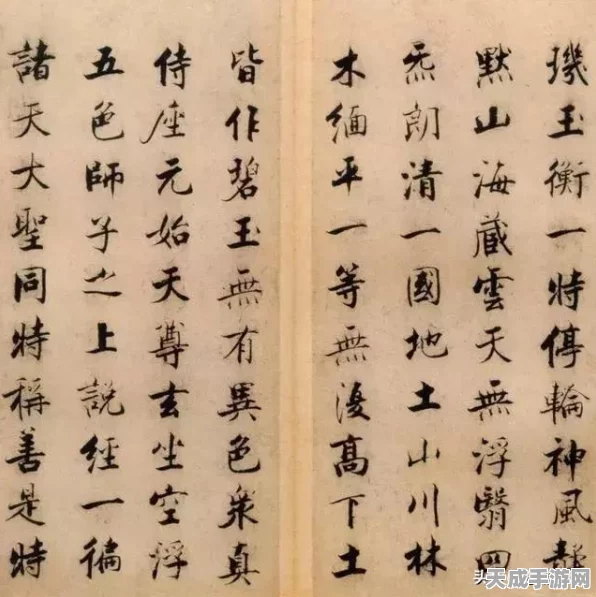 璣玉衡一時停輪神風靜
默山海藏雲天無浮翳四
炁朗清一國地土山川林
木緬平一等無復髙下土
皆作碧玉無有異色衆真
侍座元始天尊玄坐空浮
五色師子之上說經一徧
諸天大聖同時稱善是時
天成手游网